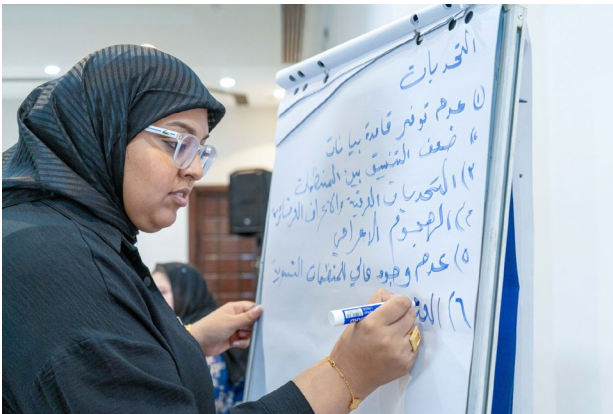 التحديات
① عدم توفر قاعدة بيانات
٢) ضعف التنسيق بين المنظمات
٣) التحديات الامنية والاعراف
٤) الهجوم الاعلامي
٥) عدم وجود مالي للمنظمات النسوية
٦)